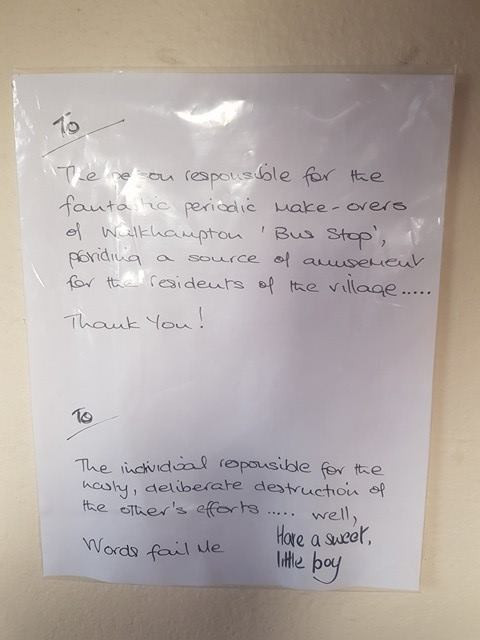 To
The person responsible for the
fantastic periodic make-overs
of Walkhampton 'Bus Stop',
providing a source of amusement
for the residents of the village.....
Thank You!
To
The individual responsible for the
nasty, deliberate destruction of
the other's efforts ..... well,
Words fail Me
Have a sweet,
little boy